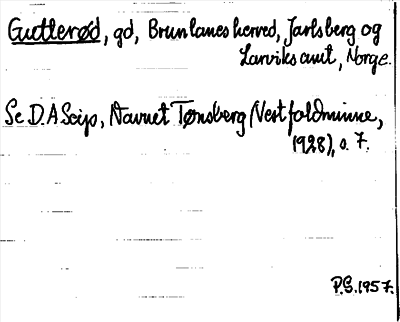 Gutterød, gd, Brunlanes herred, Jarlsberg og
Larviks amt, Norge.
Se D.A Seip, Navnet Tønsberg (Vestfoldminne,
1928), s. 7.
P.S. 1957.